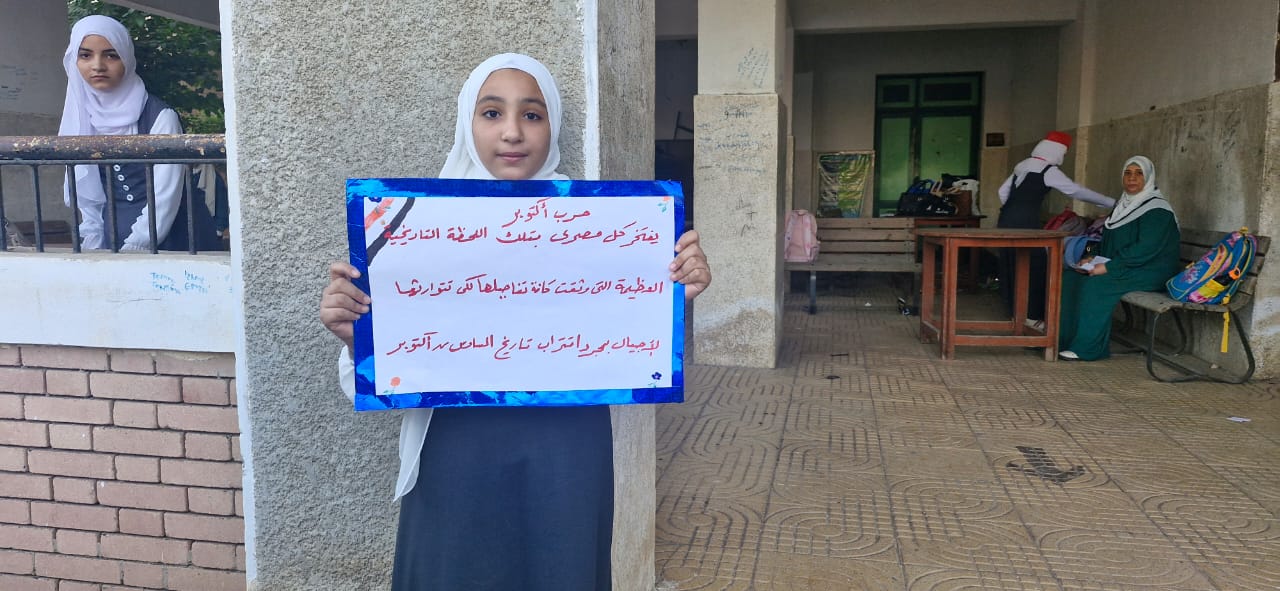 حرب أكتوبر
يفتخر كل مصرى بتلك اللحظة التاريخية
العظيمة التى وثقت كافة تفاصيلها لكى تتوارثها
لأجيال بمجرد اقتراب تاريخ السادس من أكتوبر